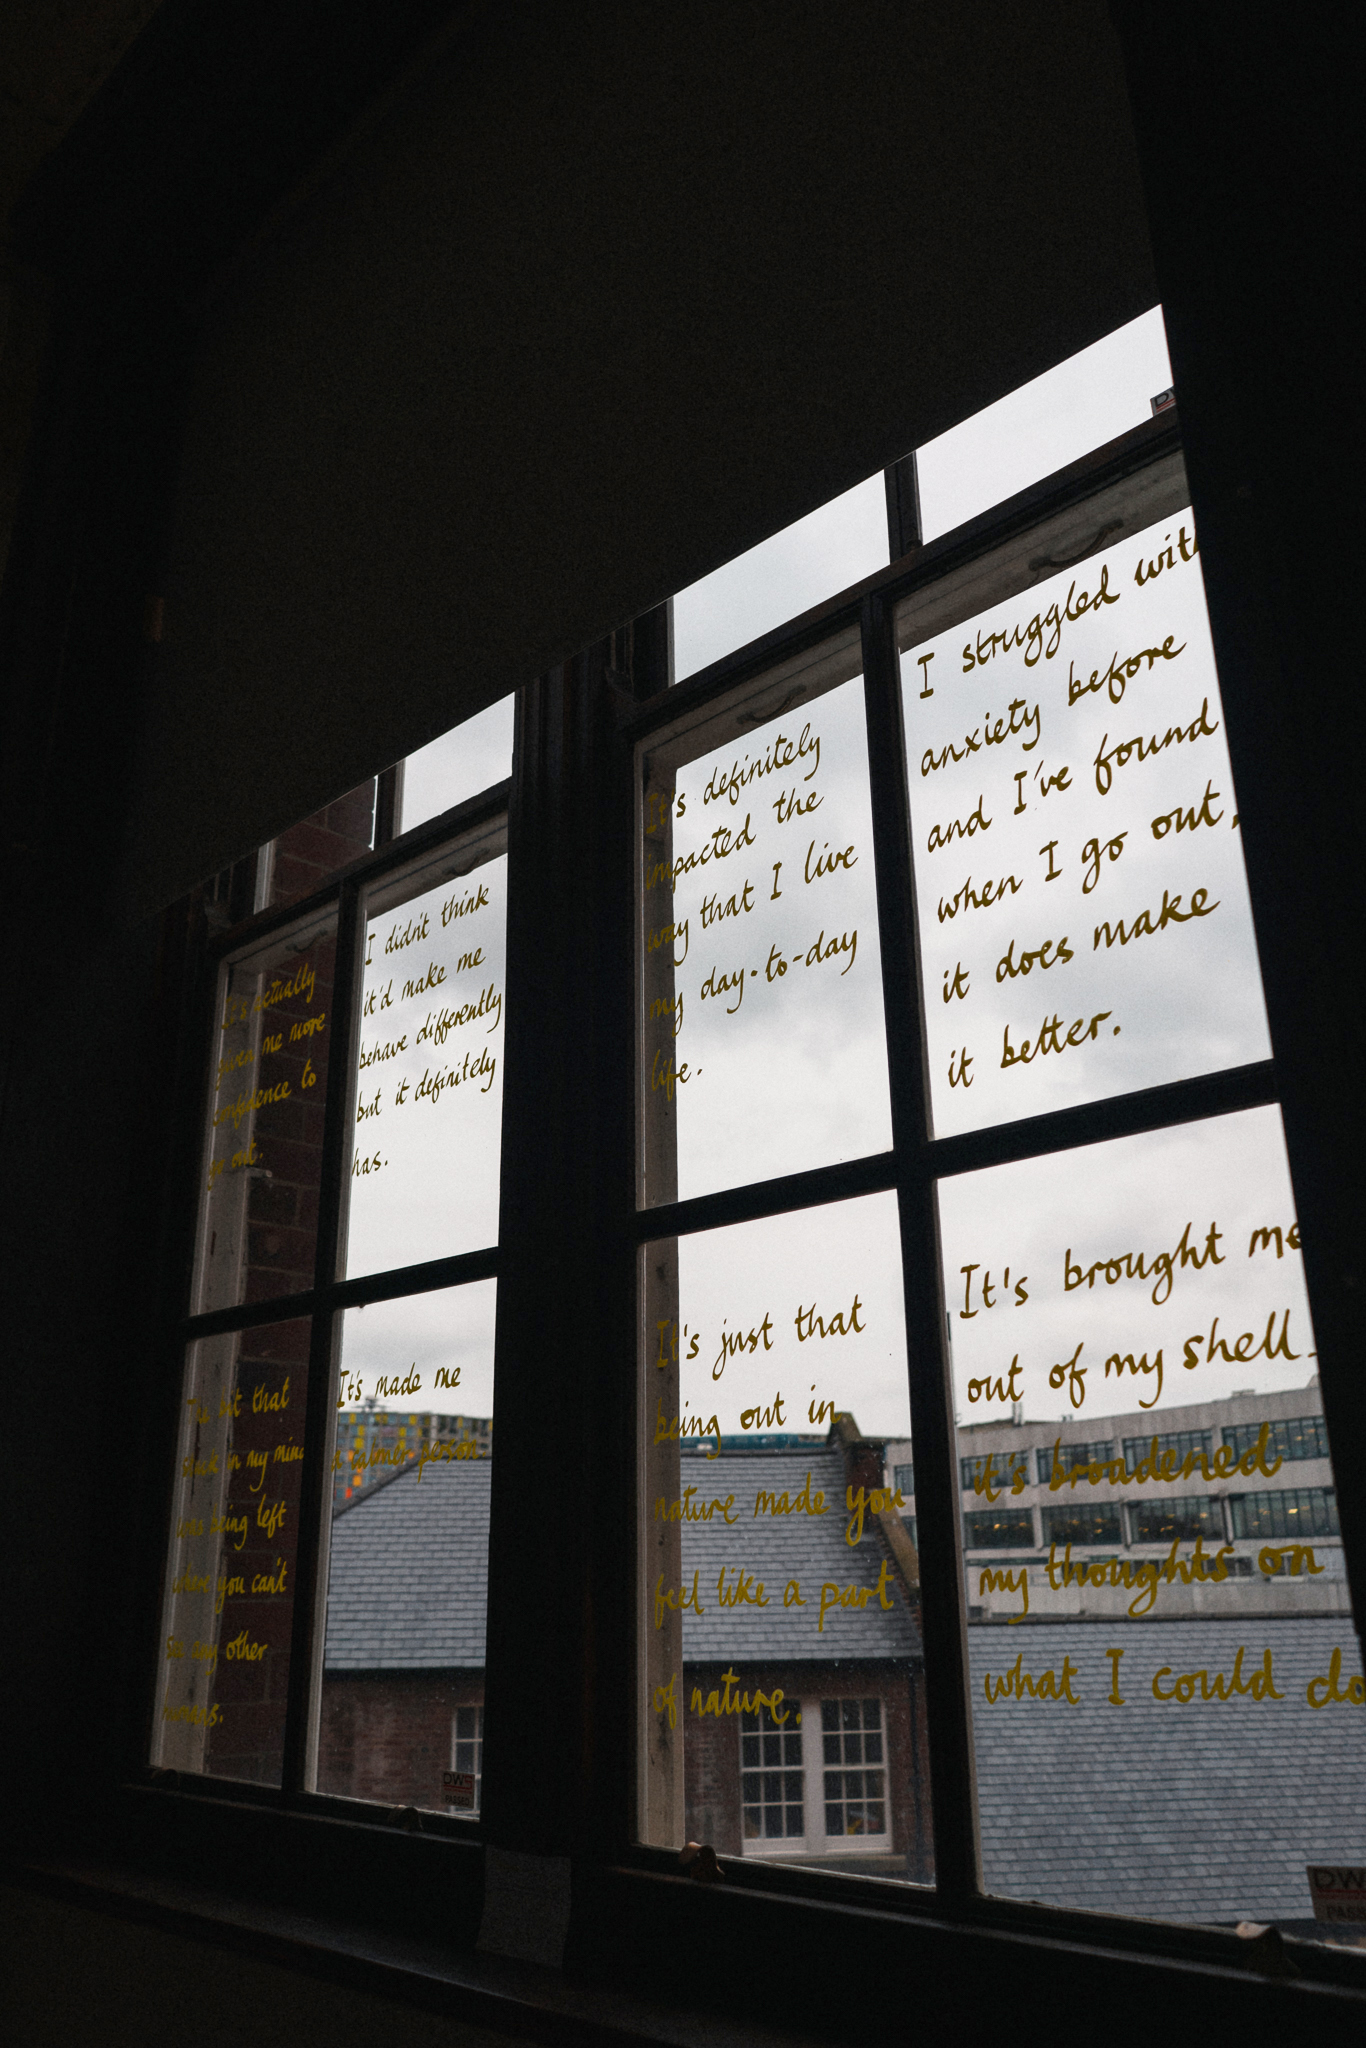 It's actually
given me more
confidence to
go out.
I didn't think
it'd make me
behave differently
but it definitely
has.
It's definitely
impacted the
way that I live
my day-to-day
life.
I struggled with
anxiety before
and I've found
when I go out,
it does make
it better.
The bit that
stuck in my mind
was being left
where you can't
see any other
humans.
It's made me
a calmer person
It's just that
being out in
nature made you
feel like a part
of nature.
It's brought me
out of my shell.
it's broadened
my thoughts on
what I could do
DWS
PASSED
DW
PASS